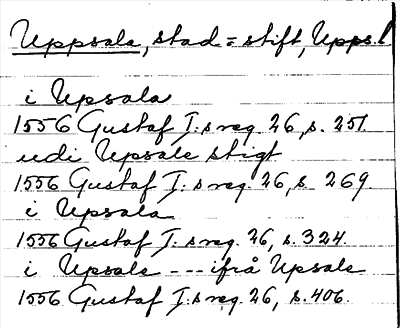 Uppsala, stad = stift, Upps.l
i Upsala
1556 Gustaf I:s reg. 26, s. 251.
udi Upsale stigt
1556 Gustaf I:s reg. 26, s. 269.
i Upsala
1556 Gustaf I:s reg. 26, s. 324.
i Upsale --- ifrå Upsale
1556 Gustaf I:s reg. 26, s. 406.